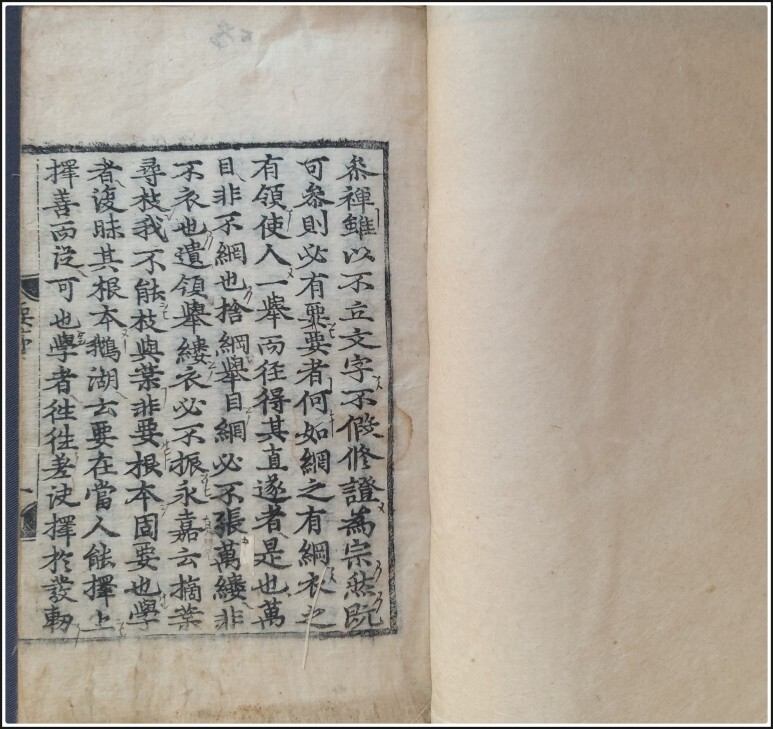 叅禪雖以不立文字不假修證爲宗然旣
可叅則必有要要者何如網之有綱衣之
有領使人一擧而徑得其直遂者是也萬
目非不網也捨綱擧目網必不張萬縷非
不衣也遺領擧縷衣必不振永嘉云摘葉
尋枝我不能枝與葉非要根本固要也學
者復昧其根本鵝湖云要在當人能擇上
擇善而從可也學者徃徃差决擇於發軔